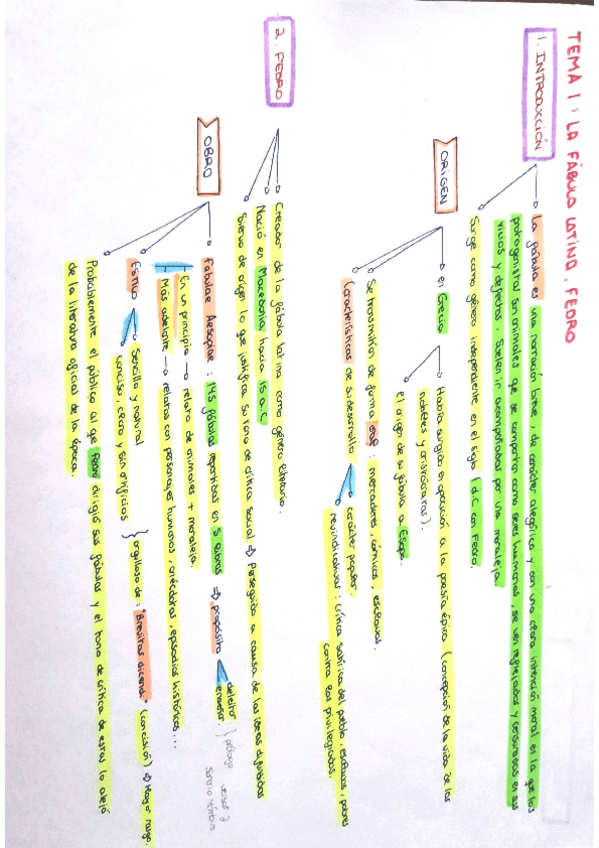 TEMA 1: LA FÁBULA LATINA. FEDRO
1. INTRODUCCIÓN
La fábula es una narración breve, de carácter alegórico y con una clara intención moral en la que los
protagonistas son animales que se comportan como seres humanos, se ven reflejados y censurados en sus
vicios y defectos. Suelen ir acompañados por una moraleja.
Surge como género independiente en el siglo I d.C con Fedro.
ORIGEN
en Grecia
Había surgido en oposición a la poesía épica (concepción de la vida de los
nobles y aristócratas).
El origen de su fábula a Esopo.
Se transmiten de forma oral: mercaderes, cómicos, esclavos.
Características de su desarrollo
carácter popular.
reivindicativas: crítica satírica del pueblo, esclavos, pobres
contra los privilegiados.
2. FEDRO
Creador de la fábula latina como género literario.
Nació en Macedonia hacia 15 a.C
Siervo de origen lo que justifica su tono de crítica social ⇒ Perseguido a causa de las ideas difundidas
OBRA
Fabulae Aesopiae: 145 fábulas repartidas en 5 libros ⇒ propósito
deleitar
enseñar.
prólogo
En un principio → relato de animales + moraleja.
Más adelante → relatos con personajes humanos, anécdotas, episodios históricos...
Estilo
Sencillo y natural
conciso, claro y sin artificios
orgulloso de: "Brevitas dicendi" (concisión) ⇒ Mayor rasgo.
Probablemente el público al que Fedro dirigió sus fábulas y el tono de crítica de estas lo alejó
de la literatura oficial de la época.